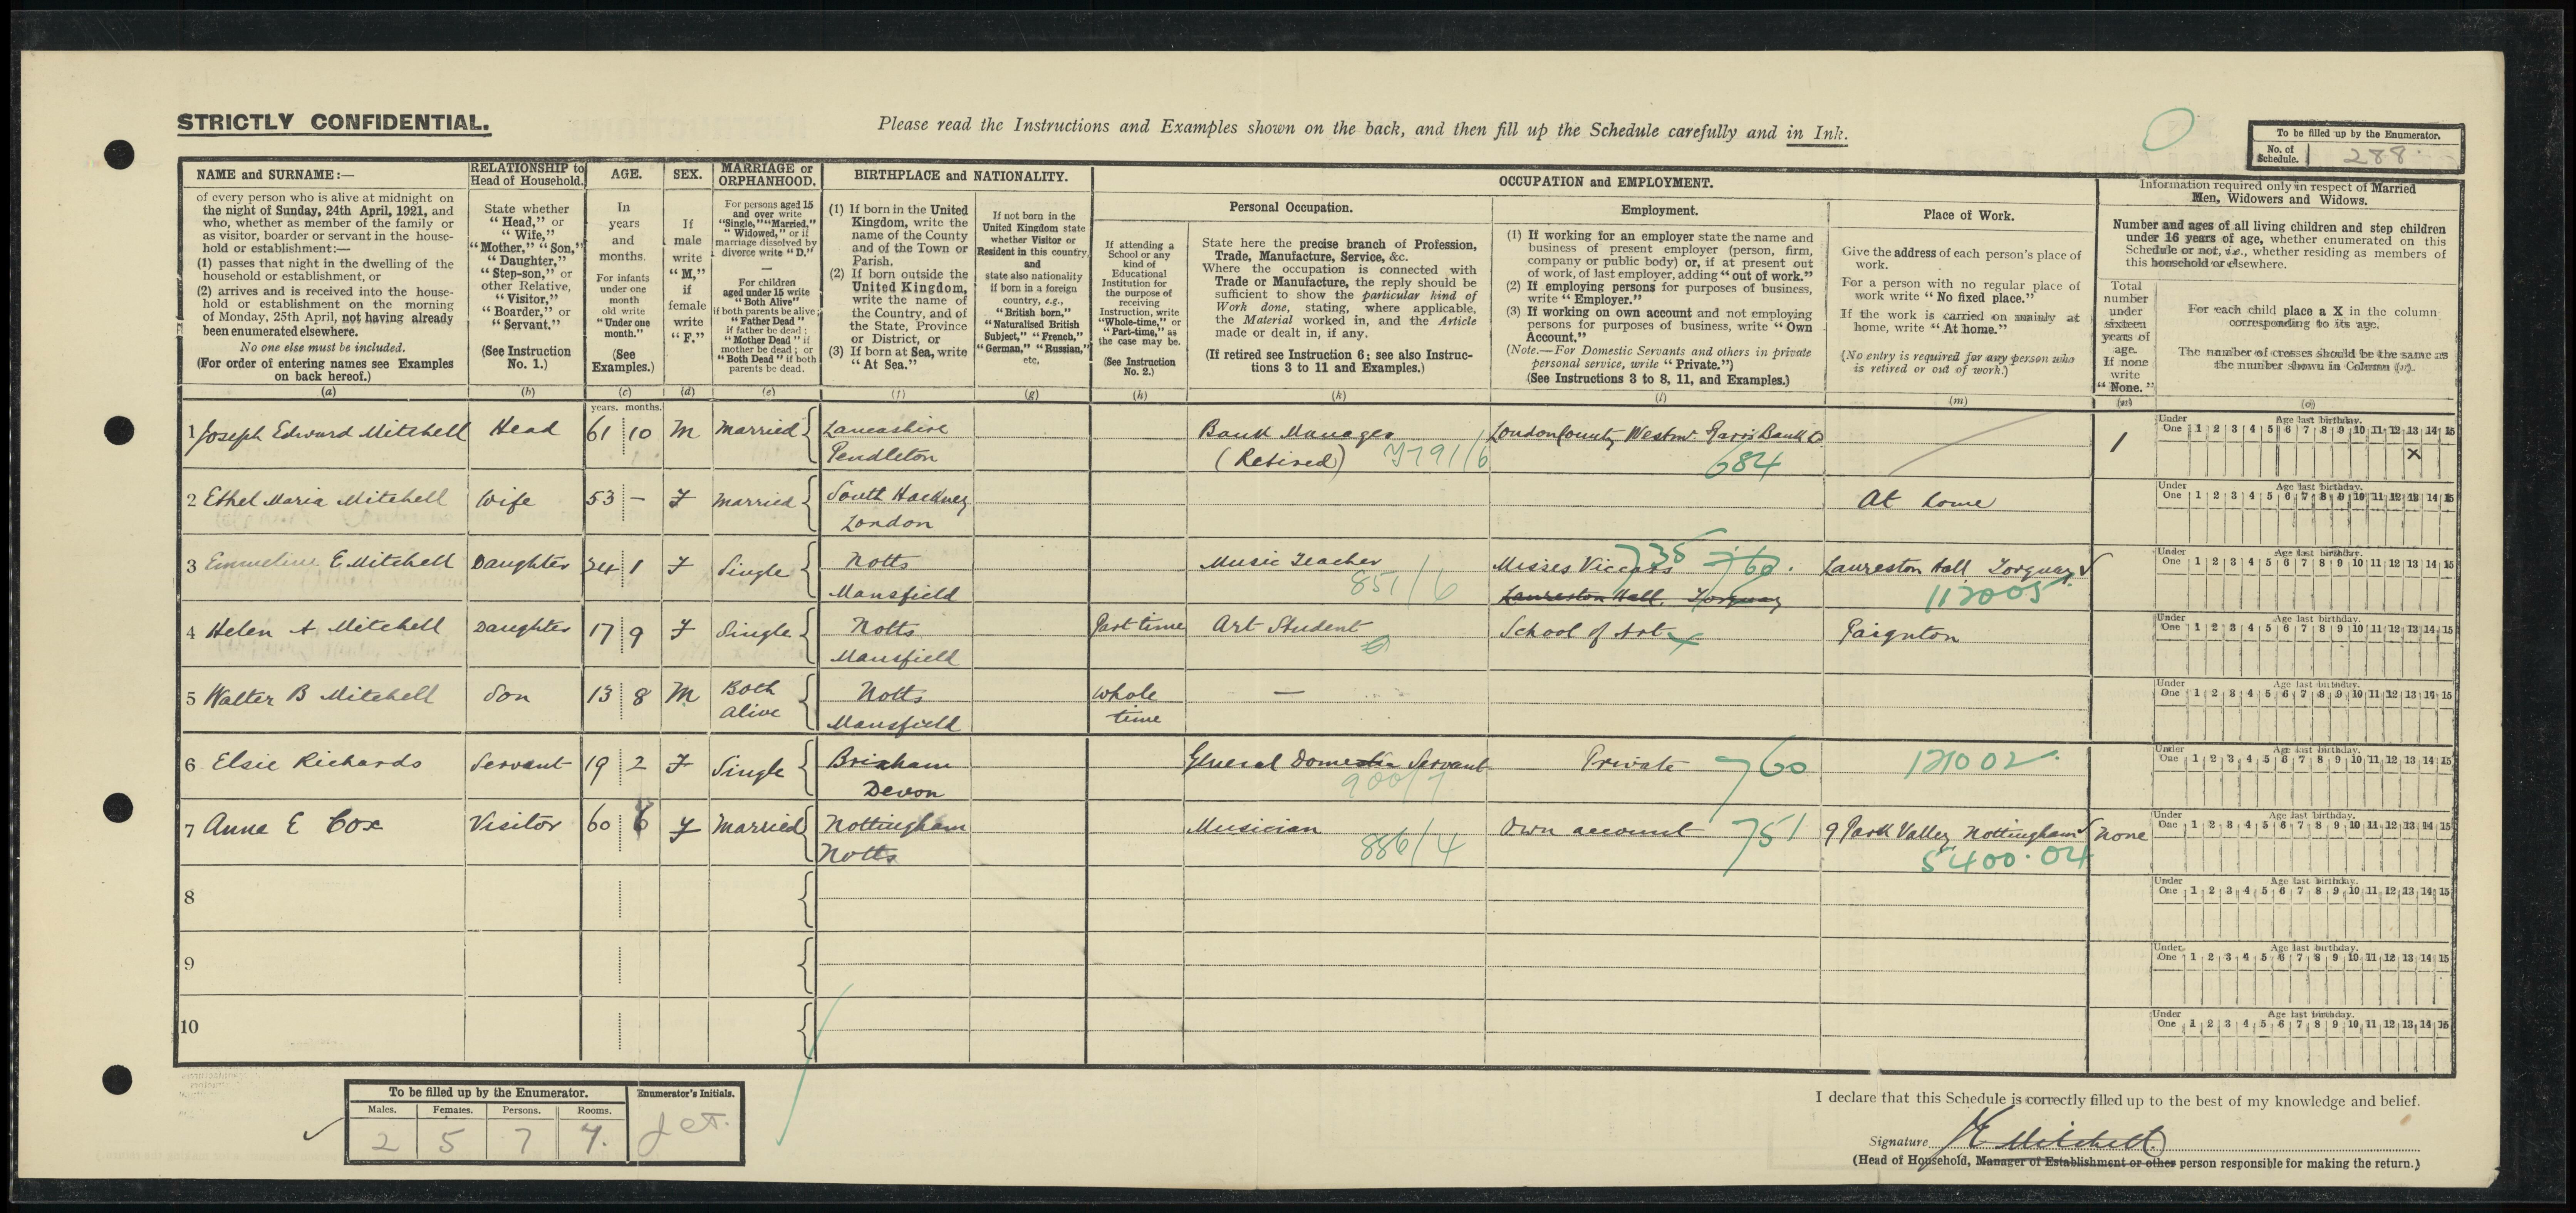 STRICTLY CONFIDENTIAL.
Please read the Instructions and Examples shown on the back, and then fill up the Schedule carefully and in Ink.
To be filled up by the Enumerator.
No. of Schedule. 288
NAME and SURNAME:—
of every person who is alive at midnight on
the night of Sunday, 24th April, 1921, and
who, whether as member of the family or
as visitor, boarder or servant in the house-
hold or establishment:—
(1) passes that night in the dwelling of the
household or establishment, or
(2) arrives and is received into the house-
hold or establishment on the morning
of Monday, 25th April, not having already
been enumerated elsewhere.
No one else must be included.
(For order of entering names see Examples
on back hereof.)
(a)
RELATIONSHIP to
Head of Household.
State whether
"Head," or
"Wife,"
"Mother," "Son,"
"Daughter,"
"Step-son," or
other Relative,
"Visitor,"
"Boarder," or
"Servant."
(See Instruction
No. 1.)
(b)
AGE.
In
years
and
months.
For infants
under one
month
old write
"Under one
month."
(See
Examples.)
(c)
SEX.
If
male
write
"M,"
if
female
write
"F."
(d)
MARRIAGE or
ORPHANHOOD.
For persons aged 15
and over write
"Single," "Married,"
"Widowed," or if
marriage dissolved by
divorce write "D."
—
For children
aged under 15 write
"Both Alive"
if both parents be alive;
"Father Dead"
if father be dead;
"Mother Dead" if
mother be dead; or
"Both Dead" if both
parents be dead.
(e)
BIRTHPLACE and NATIONALITY.
(1) If born in the United
Kingdom, write the
name of the County
and of the Town or
Parish.
(2) If born outside the
United Kingdom,
write the name of
the Country, and of
the State, Province
or District, or
(3) If born at Sea, write
"At Sea."
(f)
If not born in the
United Kingdom state
whether Visitor or
Resident in this country,
and
state also nationality
if born in a foreign
country, e.g.,
"British born,"
"Naturalised British
Subject," "French,"
"German," "Russian,"
etc.
(g)
OCCUPATION and EMPLOYMENT.
If attending a
School or any
kind of
Educational
Institution for
the purpose of
receiving
Instruction, write
"Whole-time," or
"Part-time," as
the case may be.
(See Instruction
No. 2.)
(h)
Personal Occupation.
State here the precise branch of Profession,
Trade, Manufacture, Service, &c.
Where the occupation is connected with
Trade or Manufacture, the reply should be
sufficient to show the particular kind of
Work done, stating, where applicable,
the Material worked in, and the Article
made or dealt in, if any.
(If retired see Instruction 6; see also Instruc-
tions 3 to 11 and Examples.)
(k)
Employment.
(1) If working for an employer state the name and
business of present employer (person, firm,
company or public body) or, if at present out
of work, of last employer, adding "out of work."
(2) If employing persons for purposes of business,
write "Employer."
(3) If working on own account and not employing
persons for purposes of business, write "Own
Account."
(Note.—For Domestic Servants and others in private
personal service, write "Private.")
(See Instructions 3 to 8, 11, and Examples.)
(l)
Place of Work.
Give the address of each person's place of
work.
For a person with no regular place of
work write "No fixed place."
If the work is carried on mainly at
home, write "At home."
(No entry is required for any person who
is retired or out of work.)
(m)
Information required only in respect of Married
Men, Widowers and Widows.
Number and ages of all living children and step children
under 16 years of age, whether enumerated on this
Schedule or not, i.e., whether residing as members of
this household or elsewhere.
Total
number
under
sixteen
years of
age.
If none
write
"None."
(n)
For each child place a X in the column
corresponding to its age.
The number of crosses should be the same as
the number shown in Column (n).
(o)
years. months.
1 Joseph Edward Mitchell Head 61 10 M Married Lancashire Pendleton Bank Manager (Retired) 791/6 London County Westmr Parrs Bank Ld 684 1
Under One 1 2 3 4 5 6 7 8 9 10 11 12 13 14 15 Age last birthday. x
2 Ethel Maria Mitchell Wife 53 — F Married South Hackney London At home
Under One 1 2 3 4 5 6 7 8 9 10 11 12 13 14 15 Age last birthday.
3 Emmeline E Mitchell Daughter 24 1 F Single Notts Mansfield Music Teacher 851/6 Misses Viccars 735 760 Laureston Hall, Torquay Laureston Hall Torquay 112005
Under One 1 2 3 4 5 6 7 8 9 10 11 12 13 14 15 Age last birthday.
4 Helen A Mitchell Daughter 17 9 F Single Notts Mansfield Part time Art Student School of Art x Paignton
Under One 1 2 3 4 5 6 7 8 9 10 11 12 13 14 15 Age last birthday.
5 Walter B Mitchell Son 13 8 M Both Alive Notts Mansfield Whole time —
Under One 1 2 3 4 5 6 7 8 9 10 11 12 13 14 15 Age last birthday.
6 Elsie Richards Servant 19 2 F Single Brixham Devon General Domestic Servant 900/7 Private 760 121002
Under One 1 2 3 4 5 6 7 8 9 10 11 12 13 14 15 Age last birthday.
7 Anne E Cox Visitor 60 6 F Married Nottingham Notts Musician 886/4 Own account 751 9 Park Valley Nottingham 5400.04 None
Under One 1 2 3 4 5 6 7 8 9 10 11 12 13 14 15 Age last birthday.
8
Under One 1 2 3 4 5 6 7 8 9 10 11 12 13 14 15 Age last birthday.
9
Under One 1 2 3 4 5 6 7 8 9 10 11 12 13 14 15 Age last birthday.
10
Under One 1 2 3 4 5 6 7 8 9 10 11 12 13 14 15 Age last birthday.
To be filled up by the Enumerator.
Males. Females. Persons. Rooms.
2 5 7 7.
Enumerator's Initials.
I declare that this Schedule is correctly filled up to the best of my knowledge and belief.
Signature J E Mitchell
(Head of Household, Manager of Establishment or other person responsible for making the return.)